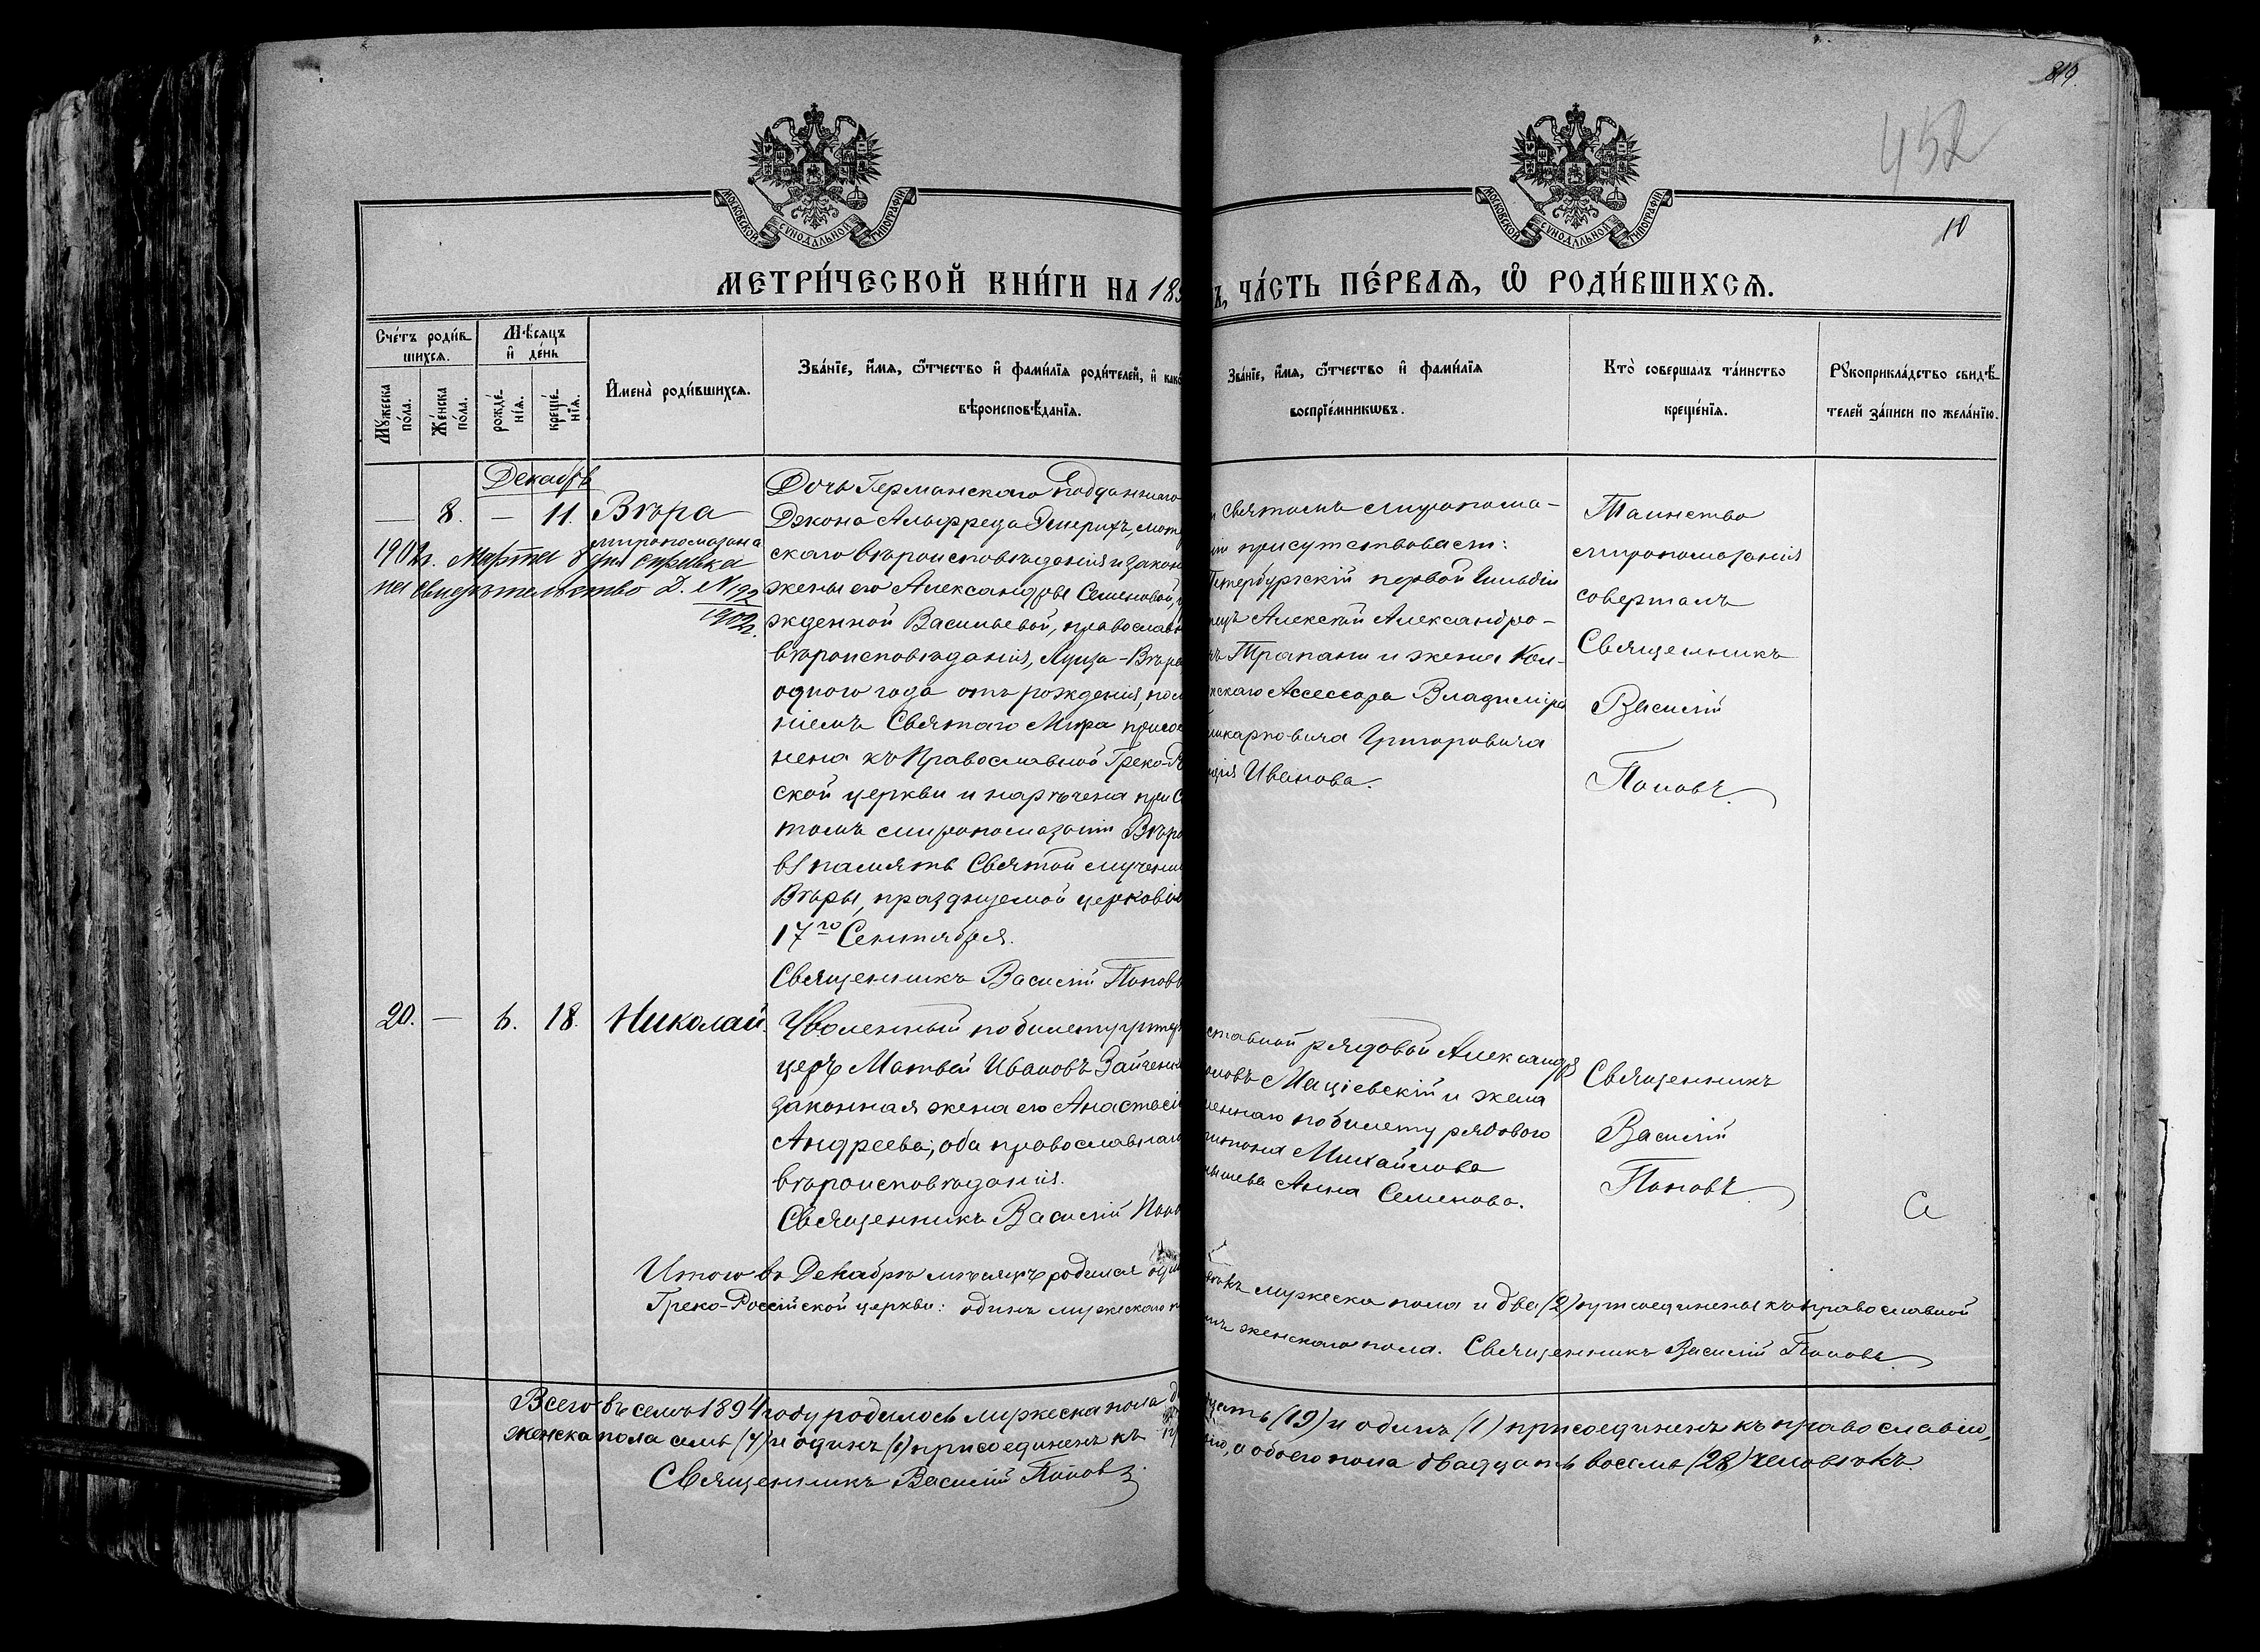 819.
452
10
МОСКОВСКОЙ СУНОДАЛЬНОЙ ТИПОГРАФІИ
МОСКОВСКОЙ СУНОДАЛЬНОЙ ТИПОГРАФІИ
МЕТРИ́ЧЕСКОЙ КНИ́ГИ НА 189
Ъ, ЧА́СТЬ ПЕ́РВАѦ, Ѡ҆ РОДИ́ВШИХСѦ.
Сче́тъ роди́в
шихсѧ.
Мꙋ́жеска по́ла.
Же́нска по́ла.
Мѣ́сѧцъ
и҆ де́нь
рожде́нїѧ.
креще́нїѧ.
И҆мена̀ роди́вшихсѧ.
Зва́нїе, и҆́мѧ, ѻ҆́тчество и҆ фами́лїѧ роди́телей, и҆ како
вѣроисповѣ́данїѧ.
Зва́нїе, и҆́мѧ, ѻ҆́тчество и҆ фами́лїѧ
воспрїе́мникѡвъ.
Кто̀ соверша́лъ та́инство
креще́нїѧ.
Рꙋкоприкла́дство свидѣ́
телей за́писи по жела́нїю.
Декабрь
— 8. — 11. Вѣра
миропомазана
1902г. Марта 8 дня справка
на свидѣтельство Д. N 192
1902г.
Дочь Германскаго подданнаго
Джона Альфреда Эмерихъ,
скаго вѣроисповѣданія и закон
жены его Александры Семеновой,
жденной Васильевой, православн
вѣроисповѣданія, Луиза-Вѣра
одного года отъ рожденія, пом
ніемъ Святаго Мѵра присо
нена къ Православной Греко-Р
ской церкви и наречена при С
томъ миропомазаніи Вѣро
въ память Святой мучени
Вѣры, празднуемой церковію
17го Сентября.
Священникъ Василій Поповъ
и Святомъ миропома-
ніи присутствовали:
Петербургскій первой Гильдіи
пецъ Алексѣй Александро-
чъ Трапани и жена Кол-
жскаго Ассесора Владиміра
ликарповича Григоровича
Иванова.
Таинство
миропомазанія
совершалъ
Священникъ
Василій
Поповъ.
20. — 6. 18. Николай.
Уволенный по билету унтер
церъ Матвѣй Ивановъ Зайчен
законная жена его Анастасі
Андреева; оба православнаго
вѣроисповѣданія.
Священникъ Василій Попо
ставной рядовой Александръ
оновъ Маціевскій и жена
леннаго по билету рядового
Михайлова
Анна Семенова.
Священникъ
Василій
Поповъ
Итого въ Декабрѣ мѣсяцѣ родился оди
вѣкъ мужеска пола и два (2) присоединены къ православной
Греко-Россійской церкви: одинъ мужескаго п
нъ женскаго пола. Священникъ Василій Поповъ.
Всего въ семъ 1894 году родилось мужеска пола д
цать (19) и одинъ (1) присоединенъ къ православію,
женска пола семь (7) и одинъ (1) присоединенъ къ
ію, а обоего пола двадцать восемь (28) человѣкъ.
Священникъ Василій Поповъ.